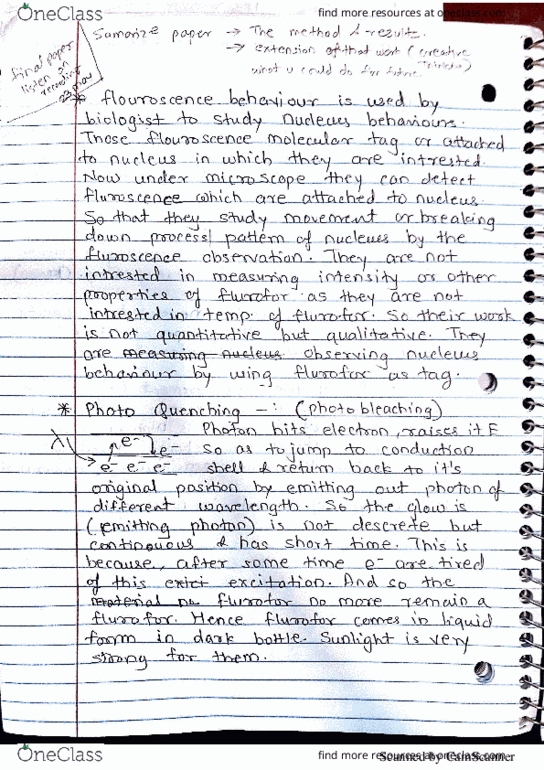 OneClass
find more resources at oneclass.com
Sumarize paper → The method & results.
→ extension of that work (creative
what u could do for future
final paper
listen on
recording
23 nov
* flouroscence behaviour is used by
biologist to study nucleus behaviour.
Those flouroscence molecular tag or attached
to nucleus in which they are intrested.
Now under microscope they can detect
fluroscence which are attached to nucleus.
So that they study movement or breaking
down process/ pattern of nucleus by the
fluroscence observation. They are not
intrested in measuring intensity or other
properties of flurofor as they are not
intrested in temp. of flurofor. So their work
is not quantitative but qualitative. They
are measuring nucleus observing nucleus
behaviour by using flurofor as tag.
* Photo Quenching -: (photo bleaching)
Photon hits electron, raises it E
λ1 e- e- so as to jump to conduction
e- e- e- shell & return back to it's
original position by emitting out photon of
different wavelength. So the glow is
(emitting photon) is not descrete but
continuous & has short time. This is
because, after some time e- are tired
of this exici excitation. And so the
material no flurofor no more remain a
flurofor. Hence flurofor comes in liquid
form in dark bottle. Sunlight is very
strong for them.
OneClass
find more resources at oneclass.com
Scanned by CamScanner